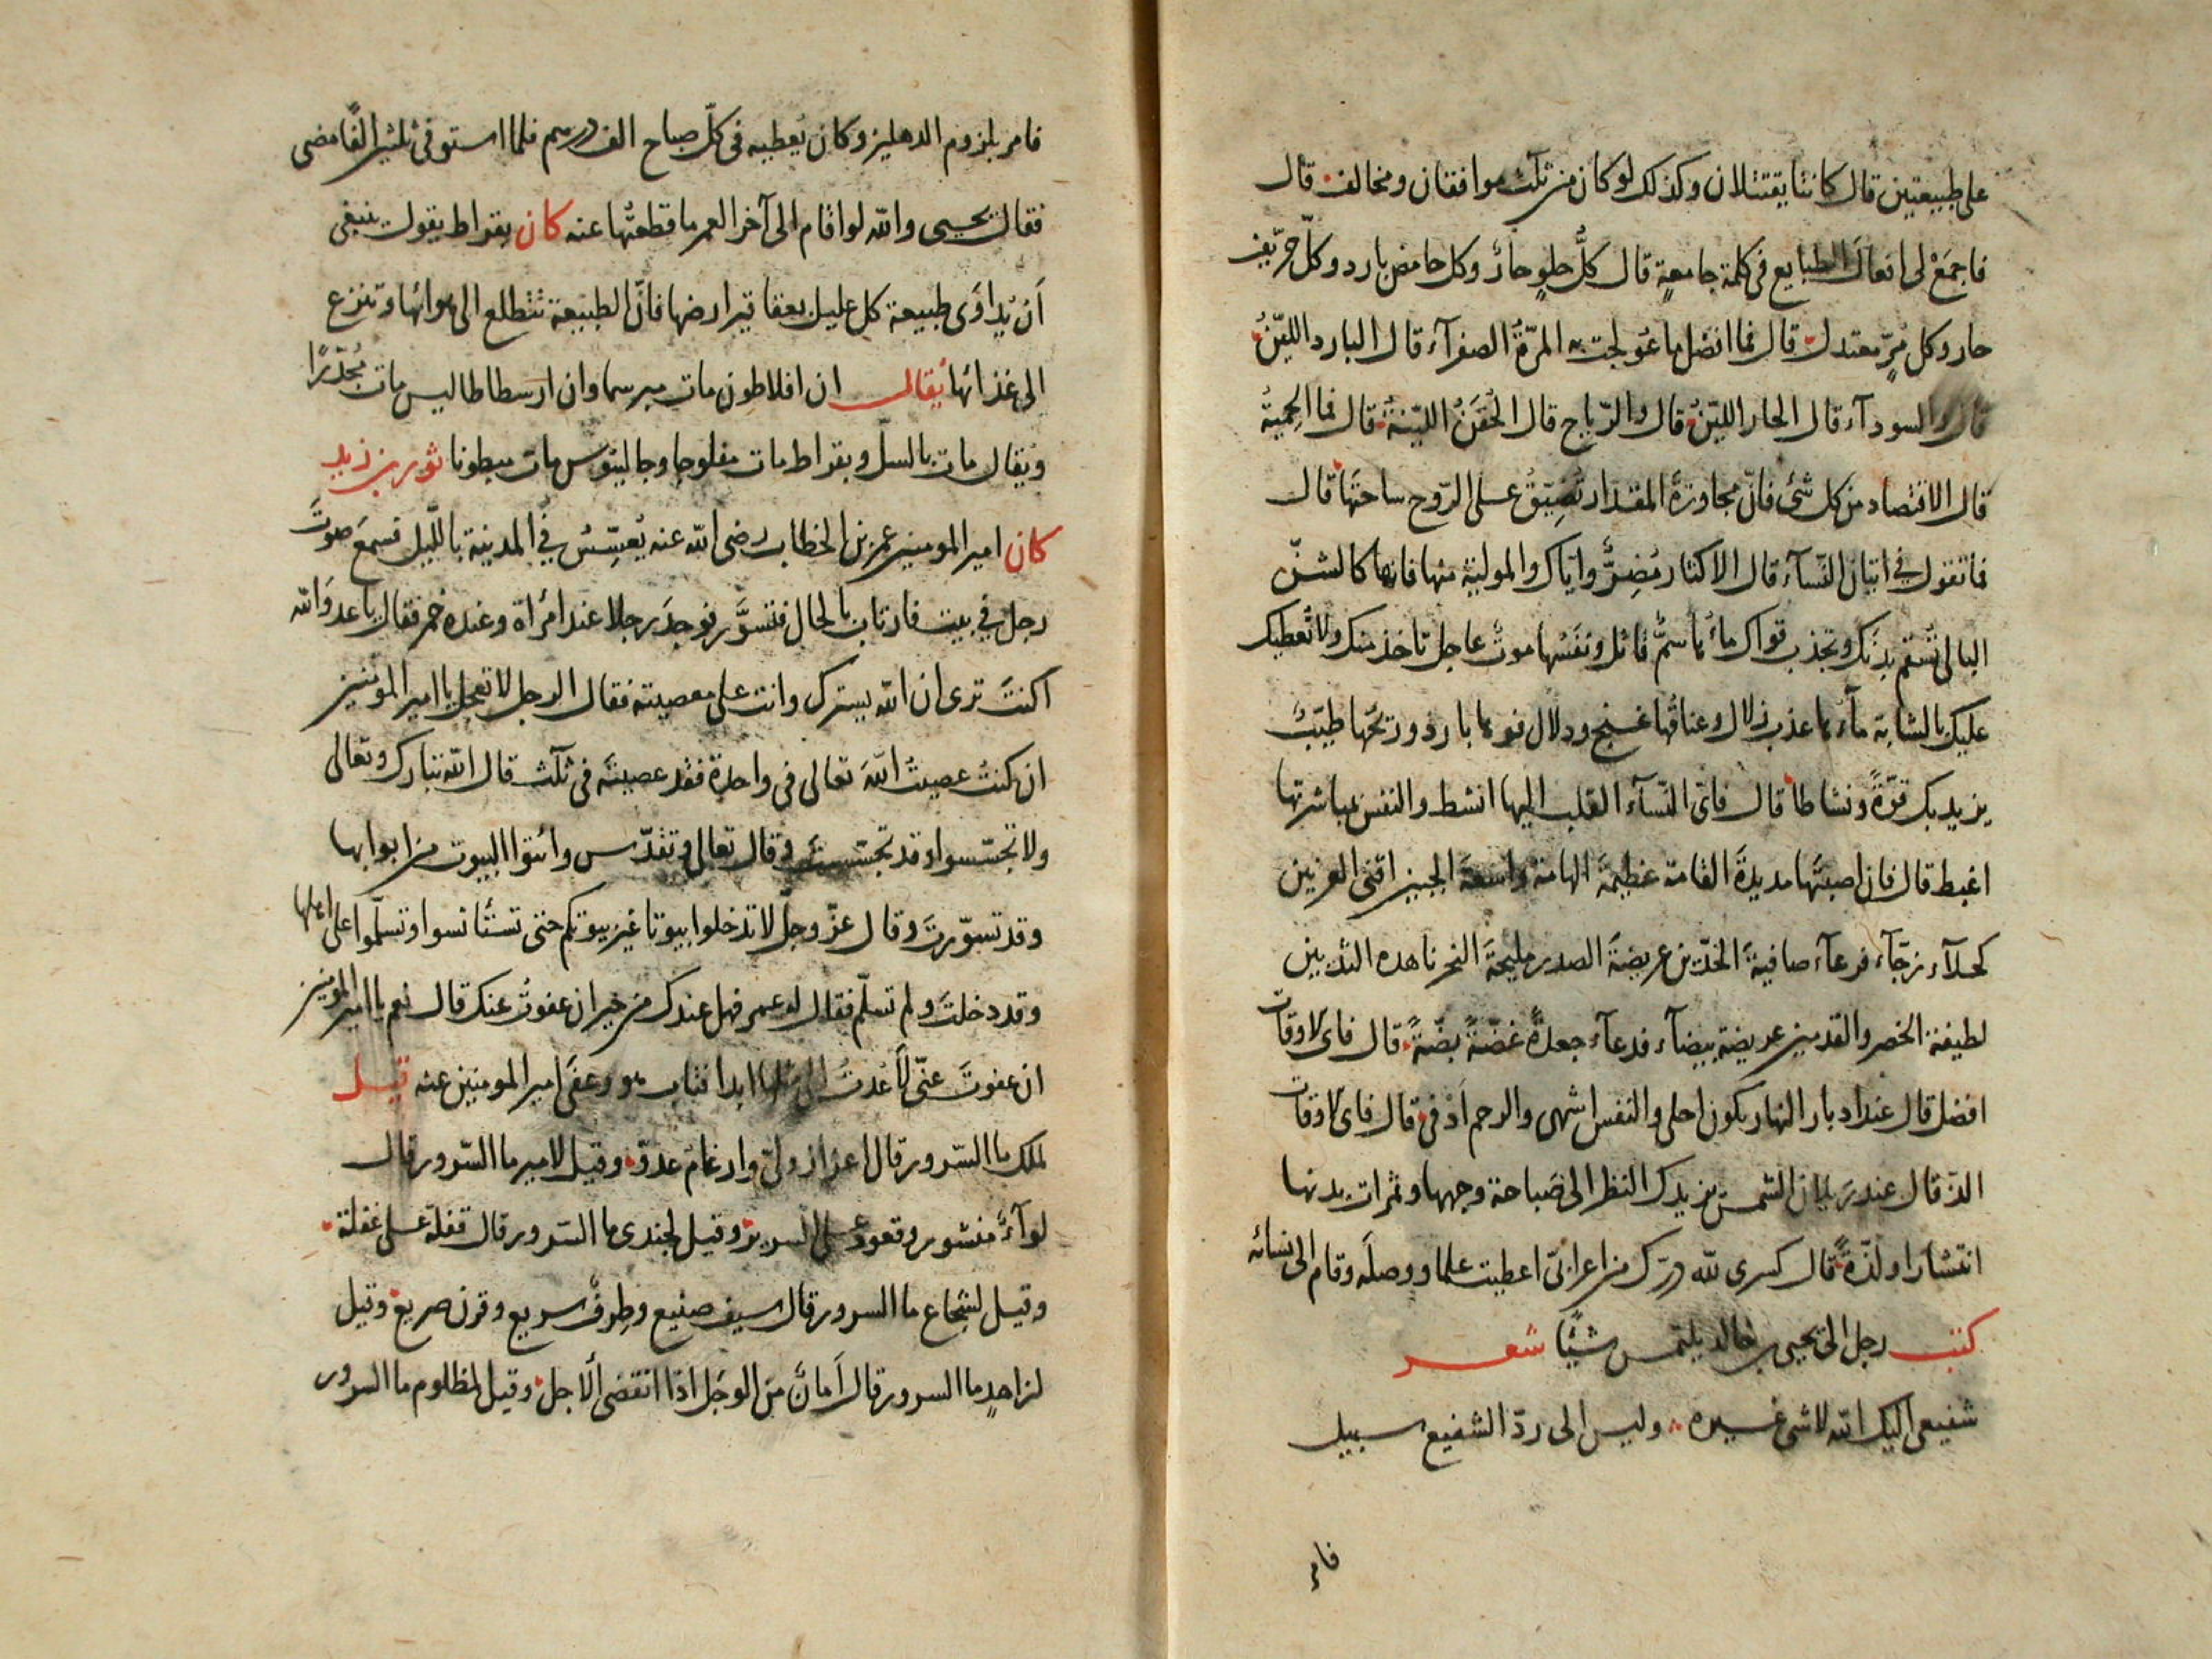 على طبيعتين قال كانتا يقتتلان وكذلك لو كان من ثلث موافقان ومخالف قال
فاجمَعْ لى افعال الطبايع فى كلمة جامعةٍ قال كلُّ حلوٍ حارٌ وكل حامض بارد وكلّ حرّيف
حار وكل مُرٍّ معتدل قال فما افضل ما عُولجت به المرّةُ الصفرآء قال البارد الليّنُ
قال والسودآء قال الحار الليّنُ قال والرّياح قال الحُقَنُ الليّنةُ قال فما الحِميةُ
قال الاقتصاد من كل شئ فانّ مجاوزةَ المقدار تُضيّقُ على الرّوح ساحتها قال
فما تقول فى اتيان النّسآء قال الاكثار مُضِرٌّ واياك والمولية منها فانها كالشنّ
البالى تُسقم بدنك وتجذب قواك ماؤها سمٌّ قاتل ونَفَسُها موتٌ عاجل تاخذ منك ولا تُعطيك
عليك بالشابة مآؤها عذب زلال وعناقُها غنج ودلال فوها بارد وريحُها طيّبٌ
يزيد بك قوّةً ونشاطا قال فاىّ النّسآء القلب اليها انشط والنفس بمباشرتها
اغبط قال فان اصبتَها مديدةَ القامة عظيمةَ الهامة واسعةَ الجبين اقنى العرنين
كحلآء زجّآء فرعآء صافيةَ الخدّين عريضةَ الصدر مليحةَ النحر ناهدة الثديين
لطيفة الخصر والقدمين عريضة بيضآء فرعآء جعدةً غضّةً بضّةً قال فاى الاوقات
افضل قال عند ادبار النهار يكون احلى والنفس اشهى والرحم ادفى قال فاى الاوقات
الذّ قال عند ريان الشمس يزيدك النظر الى صَباحة وجهها وثمرات بدنها
انتشارا ولذّةً قال كسرى لله درّك من اعرابىّ اعطيت علما ووصلَه وقام الى نسائه
كتب رجل الى يحيى بن خالد يلتمس شيئًا شعر
شفيعى اليك الله لا شئ غيره وليس الى ردّ الشفيع سبيل
فامر
فامر بلزوم الدهليز وكان يُعطيه فى كلّ صباح الف درهم فلما استوفى ثلثين الفًا مضى
فقال يحيى والله لو اقام الى آخر العمر ما قطعتُها عنه كان بقراط يقول ينبغى
اَن يُداوَى طبيعة كل عليل بعقاقير ارضها فانّ الطبيعة تتطلع الى هوائها وتنزع
الى غذائها يُقال ان افلاطون مات مبرسما وان ارسطاطاليس مات مُجدّرًا
ويقال مات بالسلّ وبقراط مات مفلوجا وجالينوس مات مبطونا ثور بن زيد
كان امير المومنين عمر بن الخطاب رضى الله عنه يُعسِّسُ فى المدينة بالليل فسمعَ صوتَ
رجل فى بيت فارتاب بالحال فتسوَّر فوجدَ رجلا عند امرُاة وعنده خمر فقال يا عدوّ الله
اكنتَ ترى ان الله يسترك وانت على معصيته فقال الرجل لا تعجل يا امير المومنين
ان كنتُ عصيتُ اللهَ تعالى فى واحدة فقد عصيتَه فى ثلآث قال الله تبارك وتعالى
ولا تجسّسوا وقد تجسّستَ وقال تعالى وتقدّس وائتوا البيوت من ابوابها
وقد تسوّرتَ وقال عزّ وجلّ لا تدخلوا بيوتا غير بيوتكم حتى تستٌانسوا وتسلّموا على اهلها
وقد دخلتَ ولم تسلّم فقال له عمر فهل عندك من خير ان عفوتُ عنك قال نعم يا امير المومنين
ان عفوتَ عنّى لا عُدتُ الى مثلها ابدا فتاب هو وعفى امير المومنين عنه قيل
لملك ما السّرور قال اعزاز ولىّ وادغام عدوّ وقيل لامير ما السّرور قال
لوآءٌ منشور وقعود على السرير وقيل لجندى ما السّرور قال قفلة على غفلة
وقيل لشجاع ما السرور قال سيف صنيع وطِرفٌ سريع وقرن صريع وقيل
لزاهدٍ ما السرور قال اَمانٌ من الوجَل اذا انقضى الاجل وقيل لمظلوم ما السرور